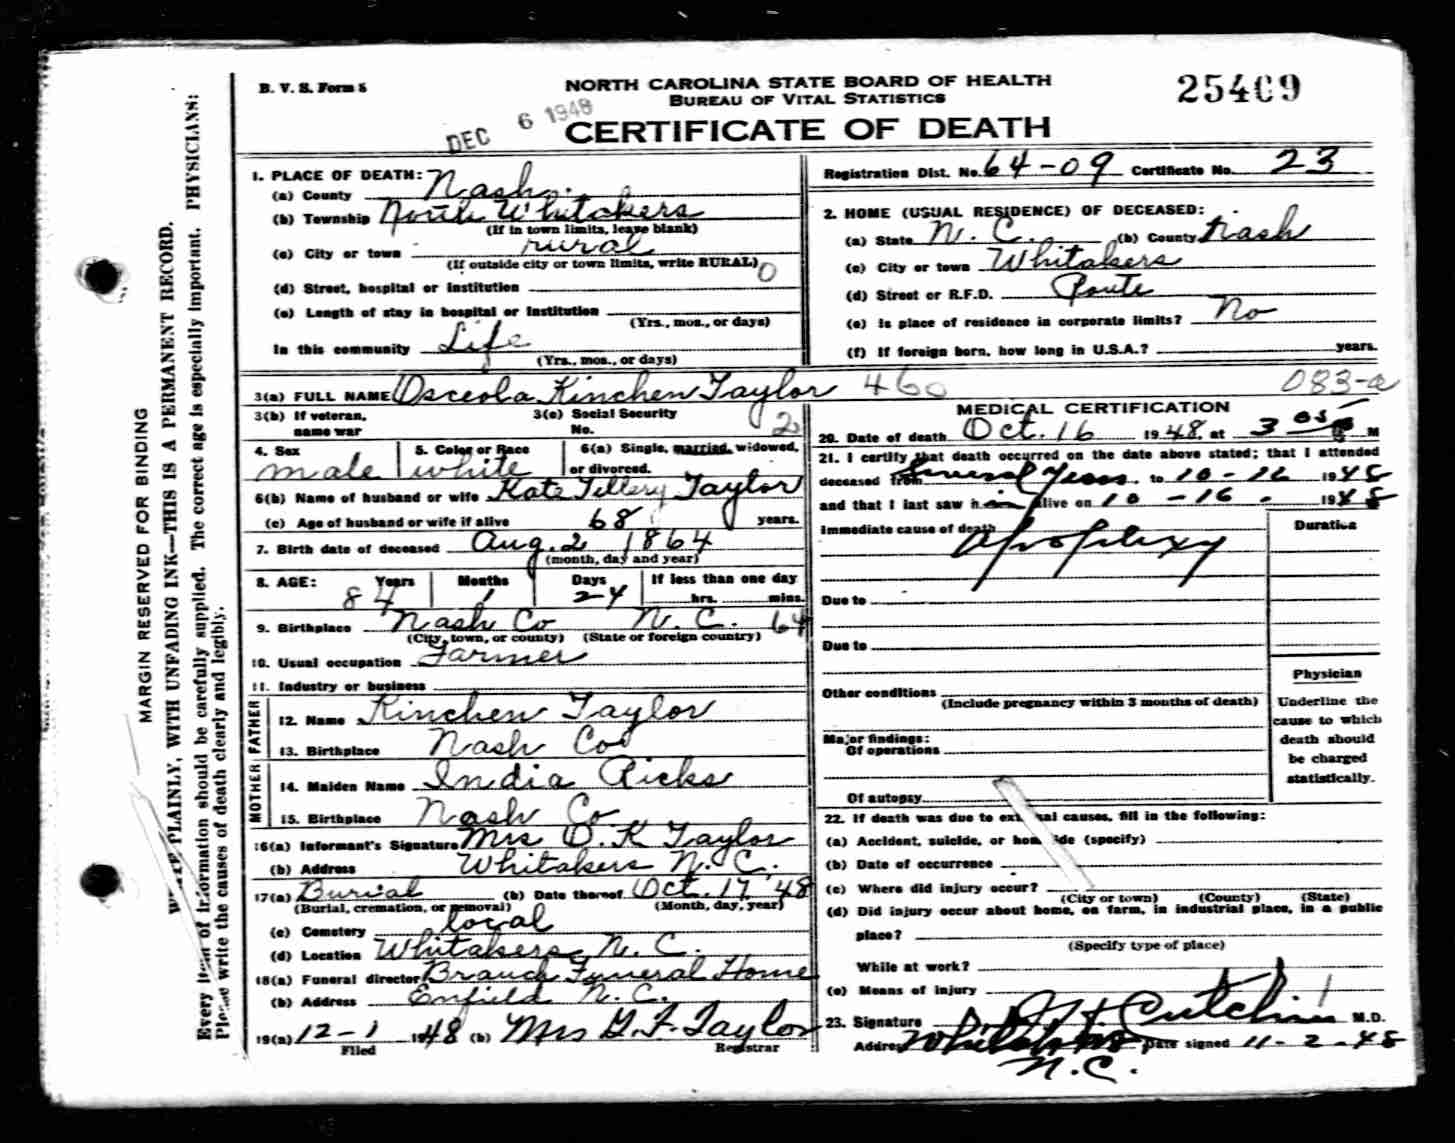 B. V. S. Form 8
NORTH CAROLINA STATE BOARD OF HEALTH
BUREAU OF VITAL STATISTICS
25409
DEC 6 1948
CERTIFICATE OF DEATH
MARGIN RESERVED FOR BINDING
WRITE PLAINLY, WITH UNFADING INK—THIS IS A PERMANENT RECORD.
Every item of information should be carefully supplied. The correct age is especially important. PHYSICIANS:
Please write the causes of death clearly and legibly.
1. PLACE OF DEATH:
(a) County Nash
(b) Township North Whitakers
(If in town limits, leave blank)
(c) City or town rural
(If outside city or town limits, write RURAL) 0
(d) Street, hospital or institution
(e) Length of stay in hospital or institution
(Yrs., mos., or days)
In this community Life
(Yrs., mos., or days)
Registration Dist. No. 64-09 Certificate No. 23
2. HOME (USUAL RESIDENCE) OF DECEASED:
(a) State N. C. (b) County Nash
(c) City or town Whitakers
(d) Street or R.F.D. Route
(e) Is place of residence in corporate limits? No
(f) If foreign born, how long in U.S.A.? years.
3(a) FULL NAME Osceola Kinchen Taylor 460 083-a
3(b) If veteran, name war
3(c) Social Security No. 2
4. Sex male
5. Color or Race white
6(a) Single, married, widowed, or divorced.
6(b) Name of husband or wife Kate Tillery Taylor
(c) Age of husband or wife if alive 68 years.
7. Birth date of deceased Aug. 2 1864
(month, day and year)
8. AGE: Years 84 Months 1 Days 24 If less than one day
hrs. mins.
9. Birthplace Nash Co N. C. 64
(City, town, or county) (State or foreign country)
10. Usual occupation Farmer
11. Industry or business
FATHER
12. Name Kinchen Taylor
13. Birthplace Nash Co
MOTHER
14. Maiden Name India Ricks
15. Birthplace Nash Co
16(a) Informant's Signature Mrs O. K Taylor
(b) Address Whitakers N. C.
17(a) Burial (b) Date thereof Oct. 17, '48
(Burial, cremation, or removal) (Month, day, year)
(c) Cemetery local
(d) Location Whitakers N. C.
18(a) Funeral director Branch Funeral Home
(b) Address Enfield N. C.
19(a) 12-1 1948 (b) Mrs G. F. Taylor
Filed Registrar
MEDICAL CERTIFICATION
20. Date of death Oct. 16 1948, at 3 05 M
21. I certify that death occurred on the date above stated; that I attended
deceased from Several Years to 10-16 1948
and that I last saw him alive on 10-16. 1948
Immediate cause of death Duration
Apoplexy
Due to
Due to
Other conditions
(Include pregnancy within 3 months of death)
Major findings:
Of operations
Of autopsy
Physician
Underline the
cause to which
death should
be charged
statistically.
22. If death was due to external causes, fill in the following:
(a) Accident, suicide, or homicide (specify)
(b) Date of occurrence
(c) Where did injury occur?
(City or town) (County) (State)
(d) Did injury occur about home, on farm, in industrial place, in a public
place?
(Specify type of place)
While at work?
(e) Means of injury
23. Signature Cutchin M.D.
Address Whitakers Date signed 11-2-48
N.C.